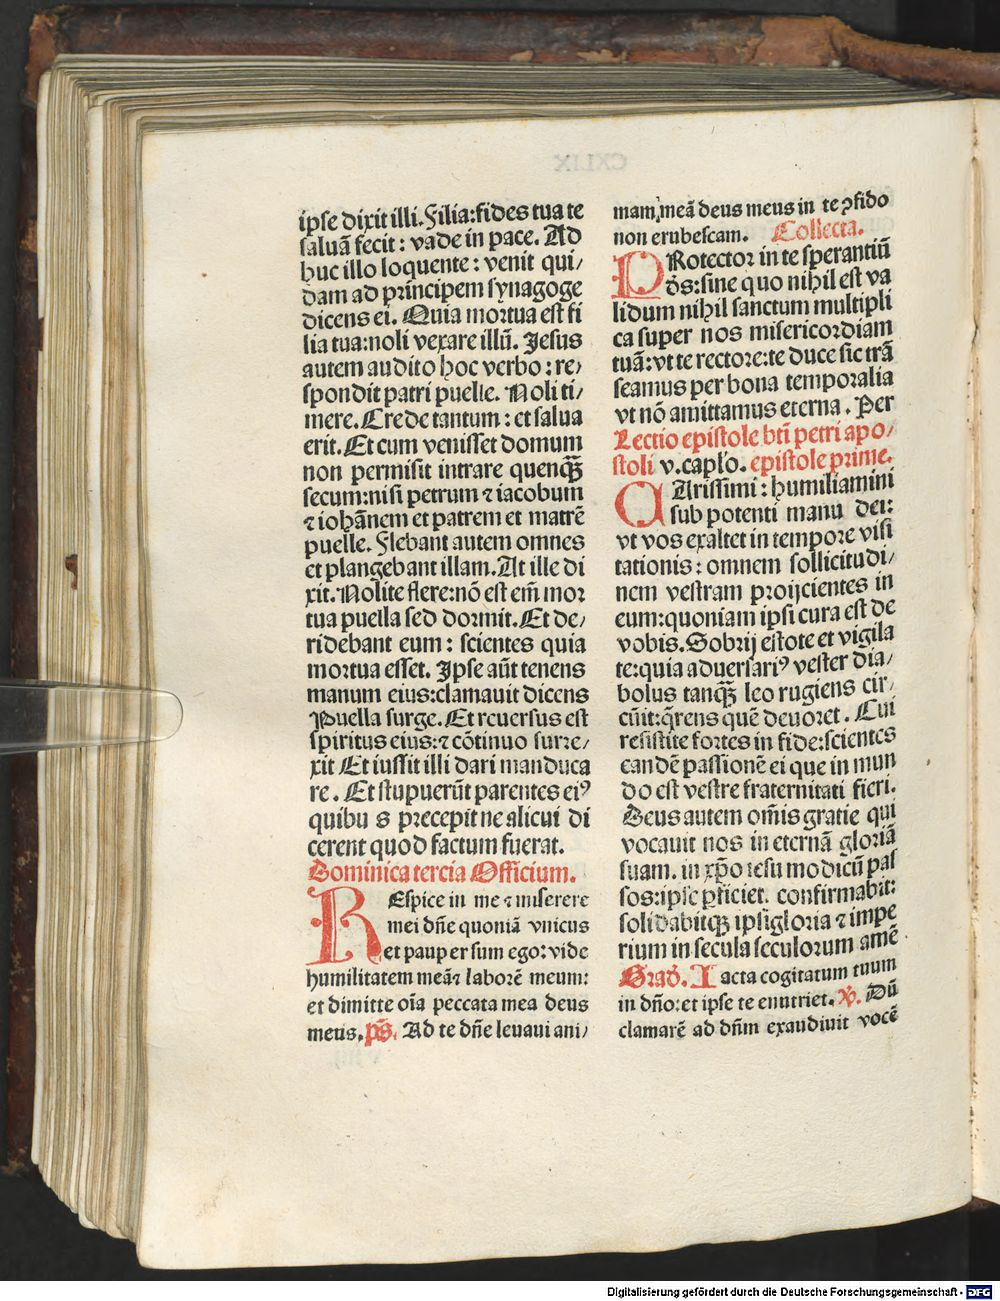 ipse dixit illi. Filia:fides tua te
saluā fecit : vade in pace. Ad
huc illo loquente : venit qui/
dam ad principem synagoge
dicens ei. Quia mortua est fi
lia tua:noli vexare illū. Jesus
autem audito hoc verbo : re/
spondit patri puelle. Noli ti/
mere. Crede tantum : et salua
erit. Et cum venisset domum
non permisit intrare quenq̄
secum:nisi petrum ⁊ iacobum
⁊ iohānem et patrem et matrē
puelle. Flebant autem omnes
et plangebant illam. At ille di
xit. Nolite flere:nō est em̄ mor
tua puella sed dormit. Et de/
ridebant eum : scientes quia
mortua esset. Ipse aūt tenens
manum eius:clamauit dicens
Puella surge. Et reuersus est
spiritus eius:⁊ cōtinuo surre/
xit Et iussit illi dari manduca
re . Et stupuerūt parentes eiꝰ
quibu s precepit ne alicui di
cerent quod factum fuerat.
Dominica tercia Officium.
REspice in me ⁊ miserere
mei dn̄e quoniā vnicus
et paup er sum ego: vide
humilitatem meā⁊ laborē meum:
et dimitte oīa peccata mea deus
meus. ps̄. Ad te dn̄e leuaui ani/
mam meā deus meus in te ↄfido
non erubescam. Collecta.
PRotector in te sperantiū
ds̄:sine quo nihil est va
lidum nihil sanctum multipli
ca super nos misericordiam
tuā: vt te rectore:te duce sic trā
seamus per bona temporalia
vt nō amittamus eterna . Per
Lectio epistole btī petri apo/
stoli v.capl'o. epistole prime.
CArissimi : humiliamini
sub potenti manu dei:
vt vos exaltet in tempore visi
tationis : omnem sollicitudi/
nem vestram proijcientes in
eum:quoniam ipsi cura est de
vobis. Sobrij estote et vigila
te:quia aduersariꝰ vester dia/
bolus tanq̄ leo rugiens cir/
cūit:q̄rens quē deuoret . Cui
resistite fortes in fide:scientes
eandē passionē ei que in mun
do est vestre fraternitati fieri.
Deus autem om̄is gratie qui
vocauit nos in eternā gloriā
suam. in xp̄o iesu modicū pas
sos:ipse ꝑficiet. confirmabit:
solidabitqꝫ ipsigloria ⁊ impe
rium in secula seculorum amē
Grad̄. Iacta cogitatum tuum
in dn̄o: et ipse te enutriet. ℣. Dū
clamarē ad dn̄m exaudiuit vocē
Digitalisierung gefördert durch die Deutsche Forschungsgemeinschaft - DFG